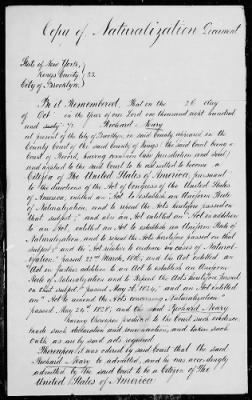 Copy of Naturalization Document
State of New York,
Kings County } SS.
City of Brooklyn.
Be it Remembered, That on the 26 day
of Oct in the Year of our Lord one thousand eight hundred
and sixty Richard Neary
at present of the City of Brooklyn in said County appeared in the
County Court of the said County of Kings (the said Court being a
Court of Record, having common law jurisdiction and seal)
and applied to the said Court to be admitted to become a
Citizen of The United States of America, pursuant
to the directions of the Act of Congress of the United States
of America, entitled An Act to establish an Uniform Rule
of Naturalization, and to repeal the Acts heretofore passed on
that subject; and also an Act entitled an "Act in addition
to an Act, entitled An Act to establish an Uniform Rule of
Naturalization, and to repeal the Acts heretofore passed on that
subject; and the Act relative to evidence in cases of Natural-
ization" passed 22nd March, 1816, and the Act entitled An
Act in further addition to an Act to establish an Uniform
Rule of Naturalization and to Repeal the Acts heretofore passed
on that subject" passed May 26, 1824, and an Act entitled
an "Act to amend the Acts concerning Naturalization"
passed May 24th 1828, and the said Richard Neary
having thereupon produced to the Court such evidence,
made such declaration and renunciation, and taken such
oath as are by said acts required
Thereupon it was ordered by said Court that the said
Richard Neary be admitted, and he was accordingly
admitted by the said Court to be a Citizen of The
United States of America